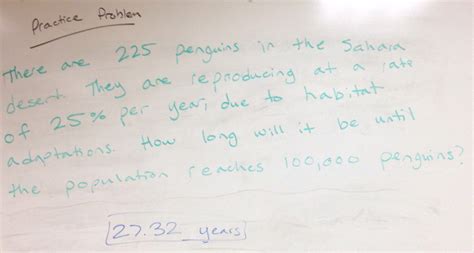 Practice Problem
There are 225 penguins in the Sahara
desert. They are reproducing at a rate
of 25% per year, due to habitat
adaptations. How long will it be until
the population reaches 100,000 penguins?
27.32 years